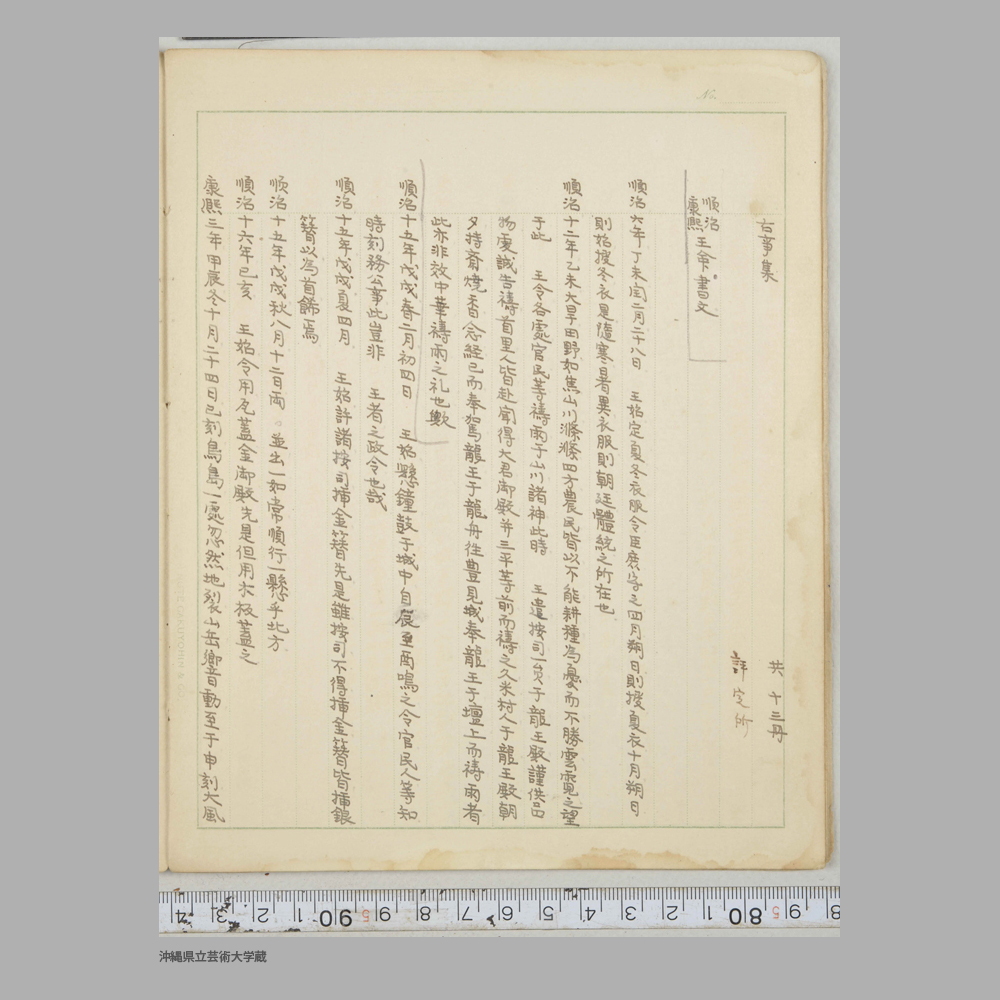 古事集
共十三冊
評定所
順治
康熙 王命書文
順治六年丁未閏二月二十八日　王始定夏冬衣服令臣庶字之四月朔日則授夏衣十月朔日
則始授冬衣是隨寒暑異衣服則朝廷體統之所在也
順治十二年乙未大旱田野如焦山川滌滌四方農民皆以不能耕種為憂而不勝雲霓之望
于此　王令各處官民等禱雨于山川諸神此時　王遣按司一員于龍王殿謹供品
物虔誠告禱首里人皆赴聞得大君御殿并三平等前而禱之久米村人于龍王殿朝
夕持斎焼香念経已而奉駕龍王于龍舟往豊見城奉龍王于壇上而禱雨者
此亦非效中華禱雨之礼也歟
順治十五年戊戌春二月初四日　王始懸鐘鼓于城中自辰至酉鳴之令官民人等知
時刻務公事此豈非　王者之政令也哉
順治十五年戊戌夏四月　王始許諸按司挿金簪先是雖按司不得挿金簪皆挿銀
簪以為首餙焉
順治十五年戊戌秋八月十二日両。並出一如常順行一懸乎北方
順治十六年己亥　王始令用瓦蓋金御殿先是但用木板蓋之
康熙三年甲辰冬十月二十四日巳刻鳥島一處忽然地裂山岳響音動至于申刻大風
沖縄県立芸術大学蔵